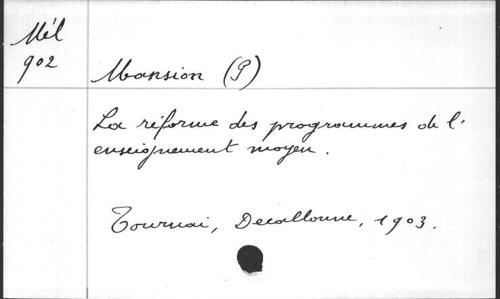 Mél
902
Mansion (P)
La réforme des programmes de l'
enseignement moyen.
Tournai, Decallonne, 1903.